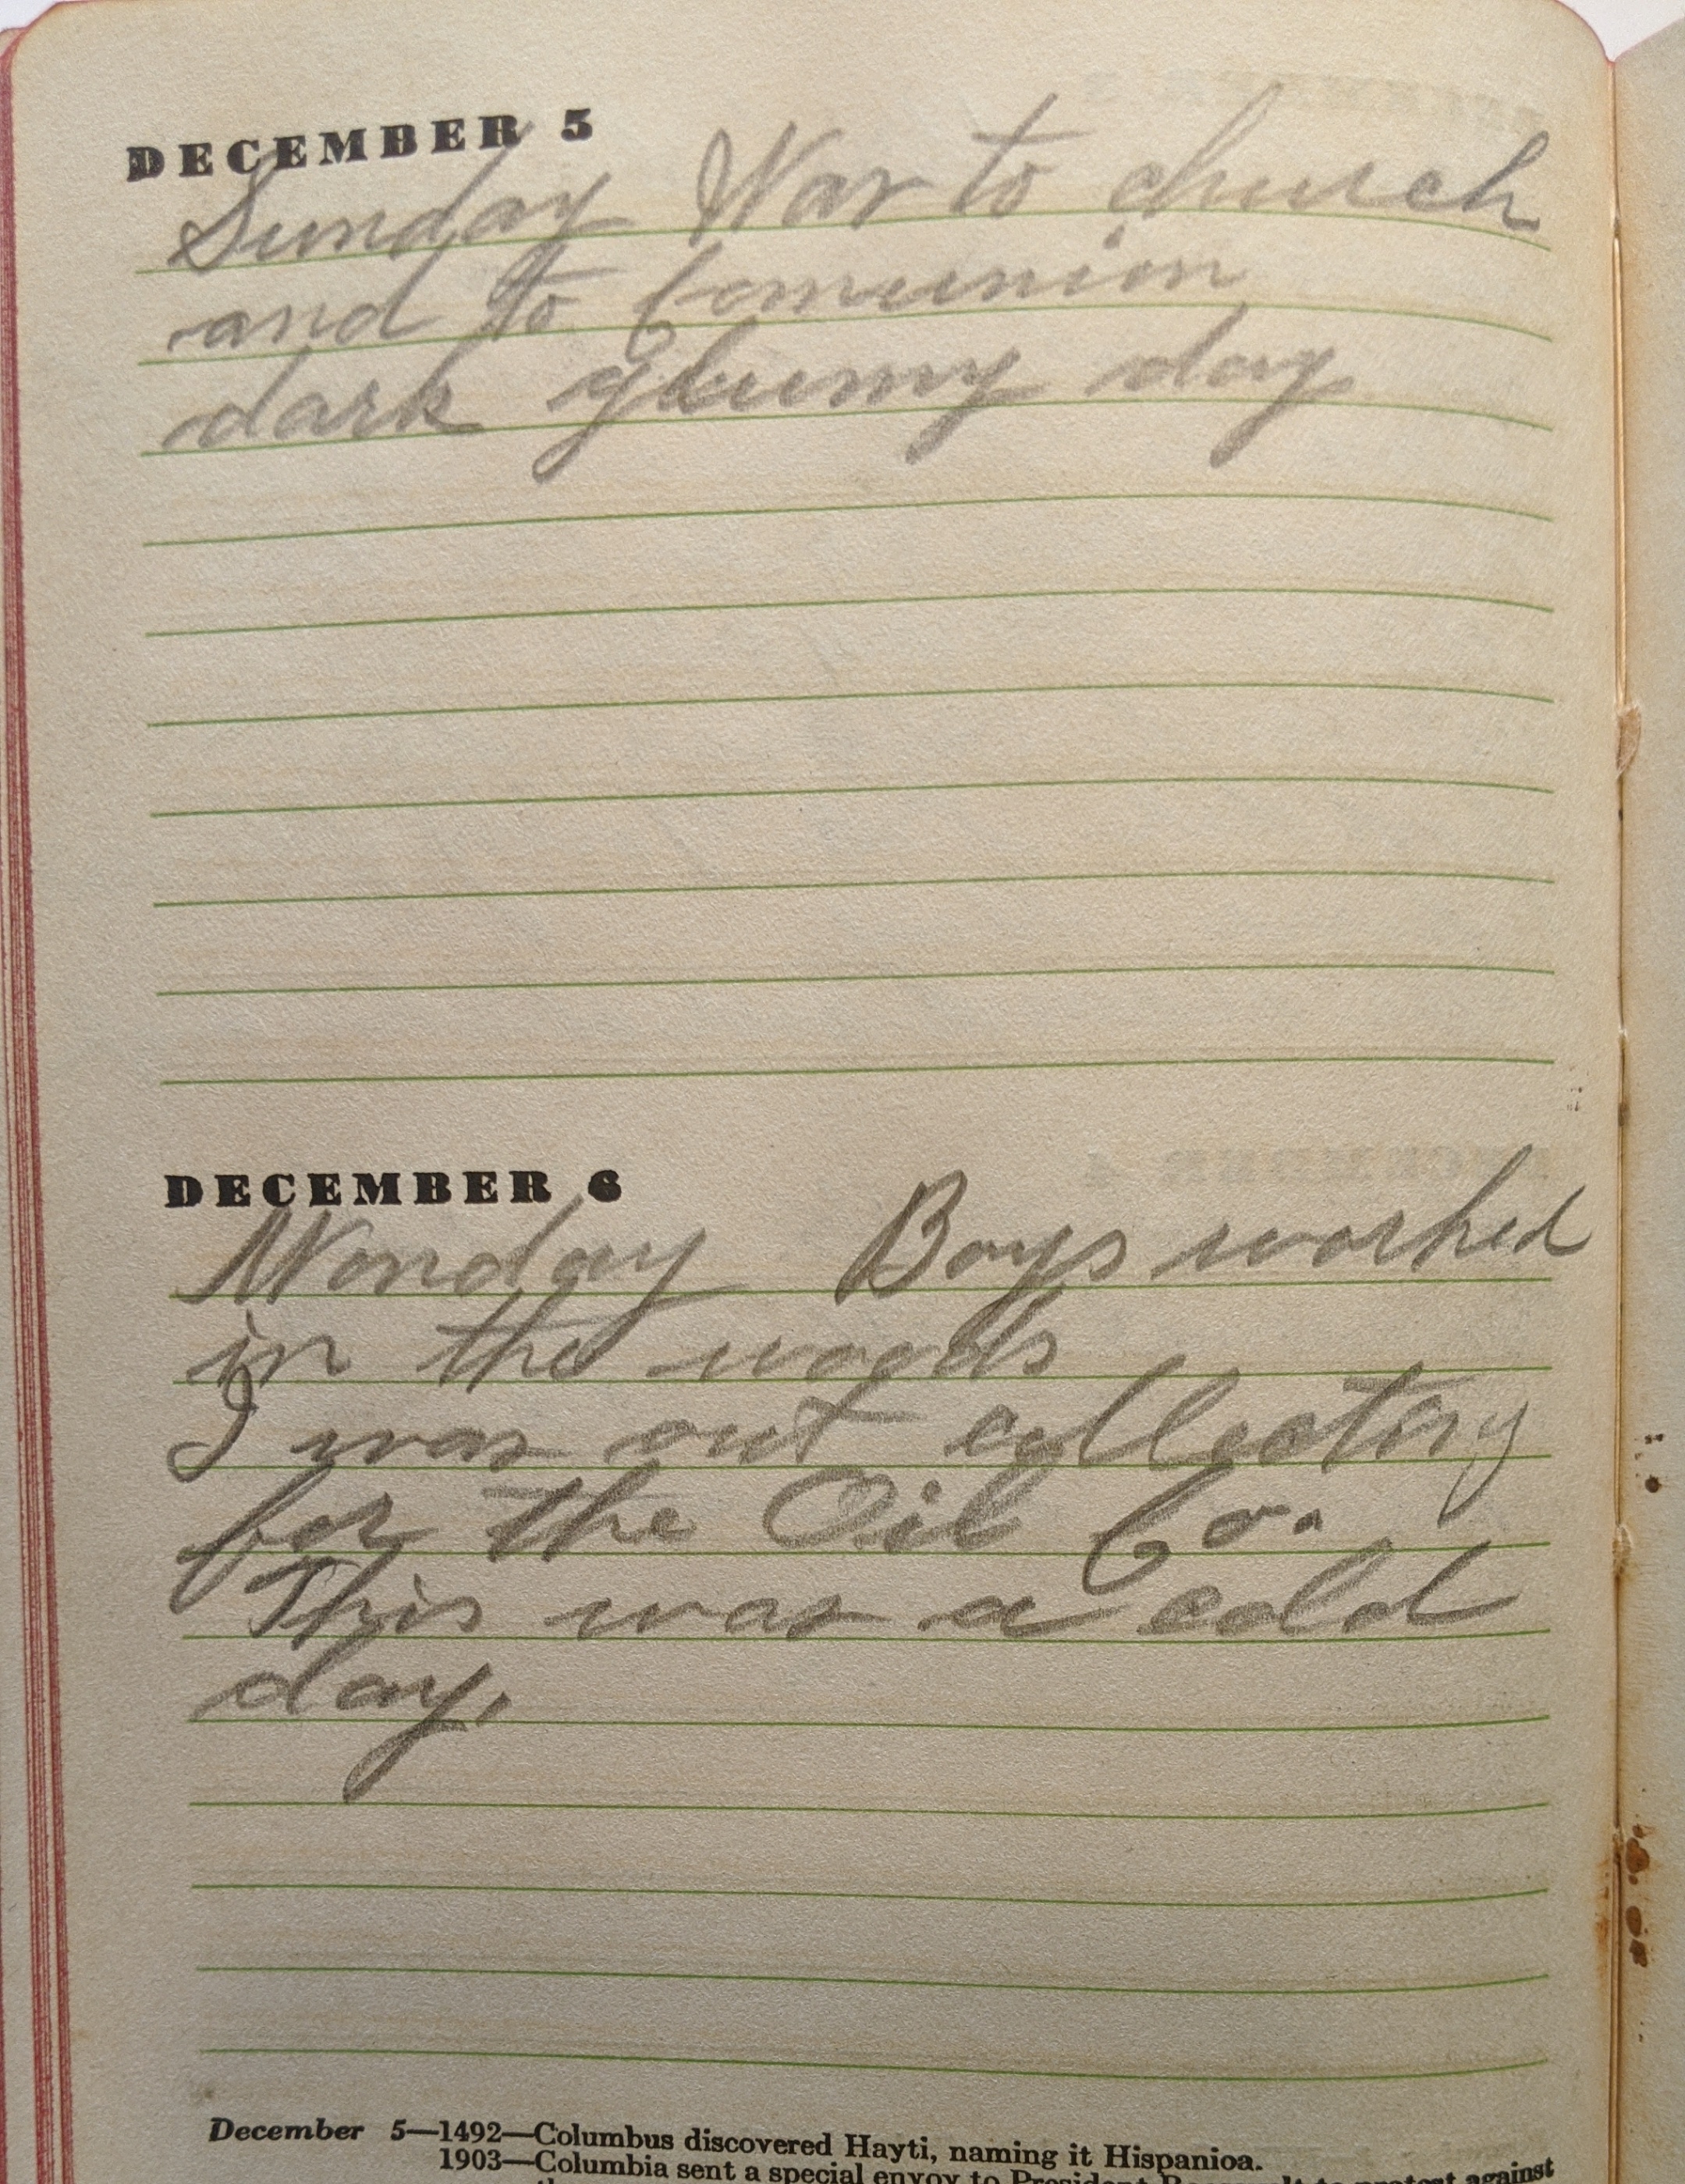 DECEMBER 5
Sunday Was to church
and to Comunion
dark glumy day
DECEMBER 6
Monday Boys worked
in the woods
I was out collecting
for the Oil Co.
This was a cold
day,
December 5—1492—Columbus discovered Hayti, naming it Hispanioa.
1903—Columbia sent a special envoy to President Roosevelt to protest against